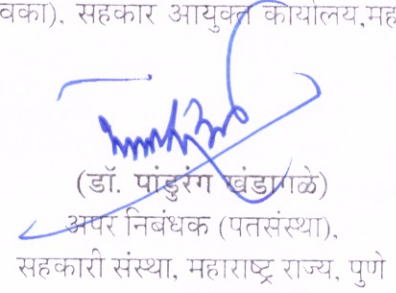 वका). सहकार आयुक्त कार्यालय,मह
(डॉ. पांडुरंग खंडागळे)
अपर निबंधक (पतसंस्था),
सहकारी संस्था, महाराष्ट्र राज्य, पुणे